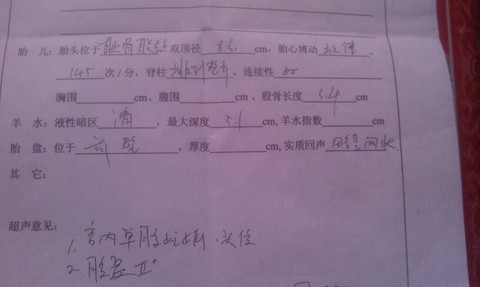 胎 儿：胎头位于耻骨联合 双顶径 cm，胎心搏动 规律，
145 次/分，脊柱 排列整齐，连续性 好
胸围 cm、腹围 cm、股骨长度 5.4 cm
羊 水：液性暗区 清，最大深度 5.1 cm，羊水指数 cm
胎 盘：位于 前壁，厚度 cm，实质回声
其 它：
超声意见：
1. 宫内单胎妊娠、头位
2. 胎盘 II⁺